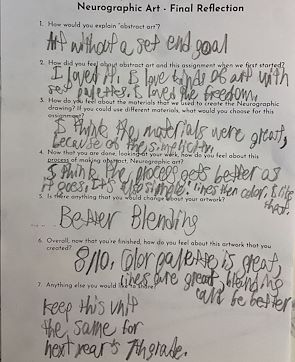 Neurographic Art - Final Reflection
1. How would you explain "abstract art"?
Art without a set end goal
2. How did you feel about abstract art and this assignment when we first started?
I loved it. I love kinds of art with
set palettes. I loved the freedom.
3. How do you feel about the materials that we used to create the Neurographic
drawing? If you could use different materials, what would you choose for this
assignment?
I think the materials were great,
because of the simplicity.
4. Now that you are done, looking at your work, how do you feel about this
process of making abstract, Neurographic art?
I think the process gets better as
it goes. It's also simple: lines then color. I like
that.
5. Is there anything that you would change about your artwork?
Better Blending
6. Overall, now that you're finished, how do you feel about this artwork that you
created?
8/10. Color palette is great,
lines are great, blending
could be better
7. Anything else you would like to share?
Keep this unit
the same for
next year's 7th grade.